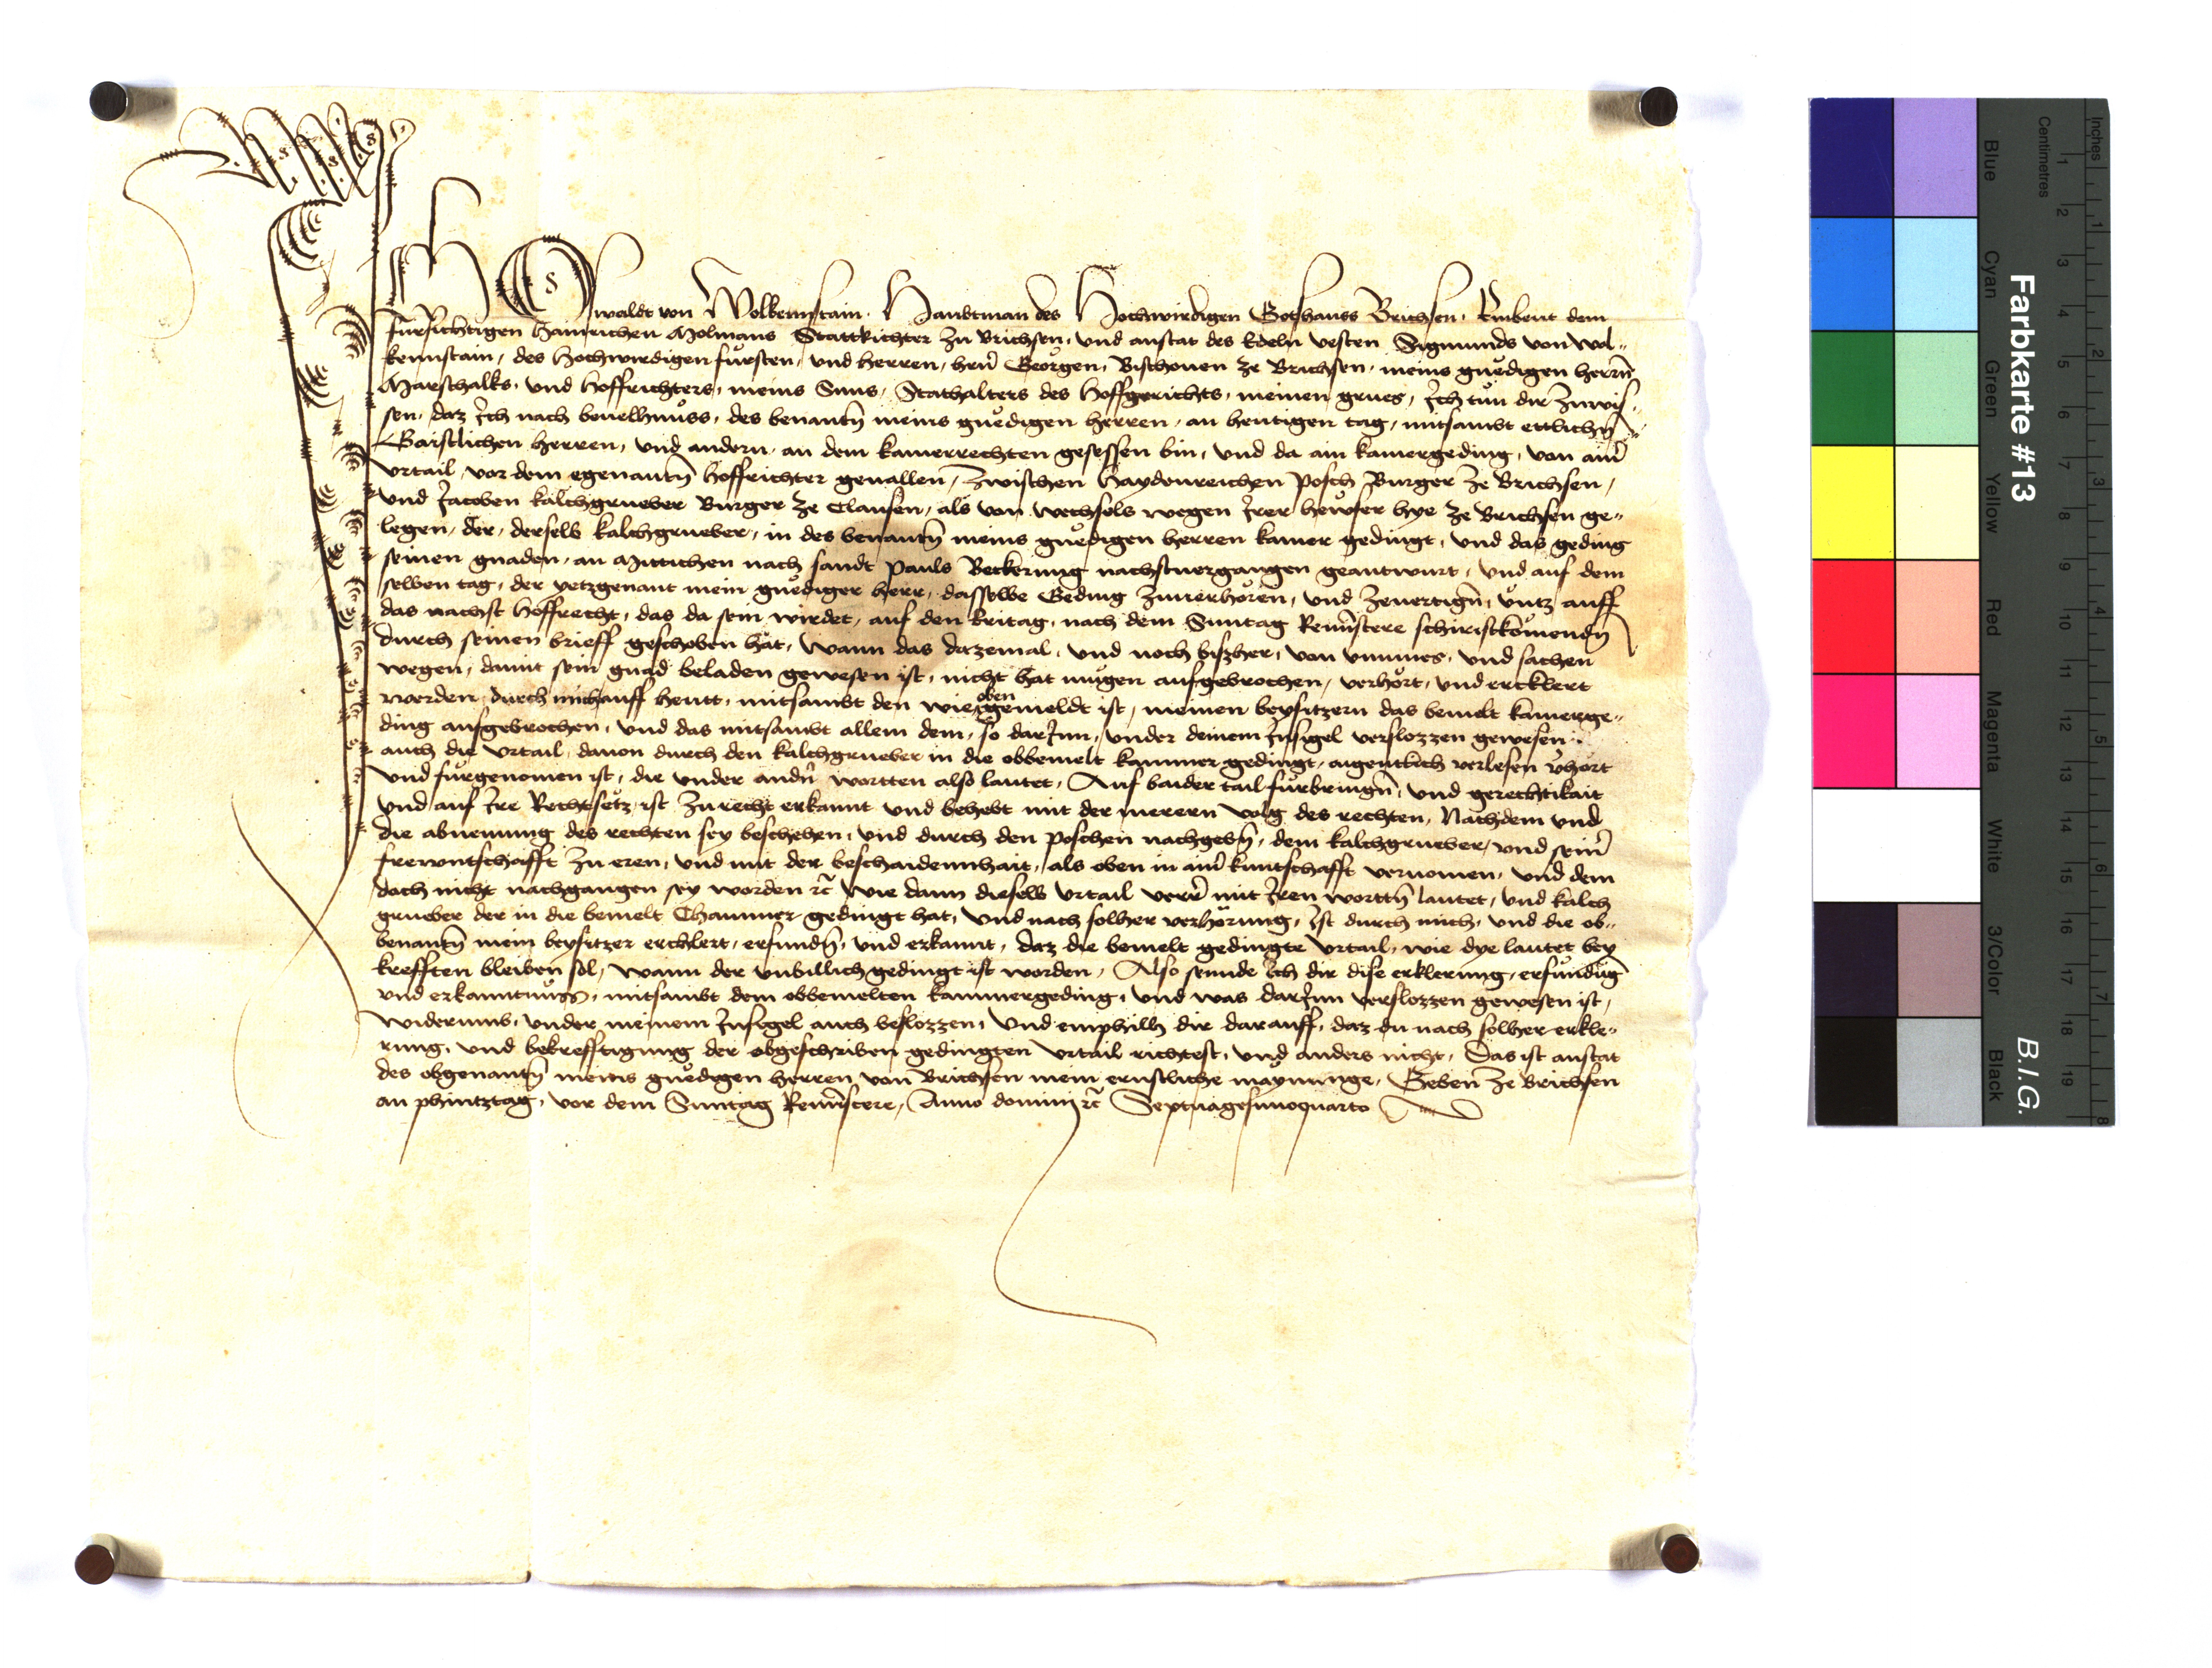 Ich Oswaldt von Wolkennstain. Haubtman des Hochwirdigen Gotshauss Brichsen. Embeut dem
fürsichtigen Hainrichen Molmans Stattrichter zu Brichsen, und anstat des Edeln vesten Sigmunds von Wol„
kennstain, des Hochwirdigen fürsten, und herren, hern̄ Georgen, Bischouen ze Brichsen, meins gnedigen herrn̄
Marschalks, und Hoffrichters, meins Suns, Stathalters des Hoffgerichts, meinen grues, Ich tun dir zuwis„
sen, daz Ich nach beuelhnuss, des benantn̄ meins gnedigen herren, an heutigen tag, mitsambt ettlichn̄
Gaistlichen herren, und andern, an dem kamerrechten gesessen bin, und da ain kamergeding, von ainr̄
vrtail, vor dem egenantn̄ hoffrichter geuallen, zwischen Haydenreichen Posch Burger ze Brichsen,
und Jacoben kalchgrueber Burger ze Clausen, als von wechsels wegen Irer hewser hye ze Brichsen ge„
legen, der, derselb kalchgrueber, in des benantn̄ meins gnedigen herren kamer gedingt, und das geding
seinen gnaden, an Mittichen nach sandt Pauls Bekerung nachstuergangen geantwurt, und auf dem
selben tag, der yetzgenant mein gnediger herr, dasselbe Geding zuuerhoren, und zeuertign̄, vntz auff
das nachst hoffrecht, das da sein wirdet, auf den freitag, nach dem Sunntag Remīscere schiristkomendn̄
durch seinen brieff geschoben hat, Wann das dazemal, und noch biszher, von vnmues, und sachen
wegen, damit sein gnad beladen gewesen ist, nicht hat mugen aufgebrochen, verhort, und ercklert
werden, durch mich auff heutt, mitsambt den wie oben gemeldt ist, meinen beysitzern das bemelt kamerge„
ding aufgebrochen, und das mitsambt allem dem, so darInn, vnder deinem Insigel verslozzen gewesen
auch die vrtail, dauon durch den kalchgrueber in die obbemelt kammer gedingt, aigentlich verlesen v̄hort
Und furgenomen ist, die vnder andn̄ wortten also lautet, Auf baider tail furbringn̄, und gerechtikait
und auf Ire Rechtsetz ist zu recht erkannt und behebt mit der merern volg des rechten, Nachdem und
die abnemung des rechten sey beschehen, und durch den Poschen nachgebn̄, dem kalchgrueber, und seinr̄
frewntschafft zu eren, und mit der beschaidennhait, als oben in ainr̄ kuntschafft vernomen, und dem
doch nicht nachgangen sey worden rc̄ Wie dann dieselb vrtail verr̄ mit Iren worttn̄ lautet, und kalch
grueber der in die bemelt Chammer gedingt hat, Und nach solher verhorung, Ist durch mich, und die ob„
benantn̄ mein beysitzer erchlert, erfundn̄, und erkannt, daz die bemelt gedingte vrtail, wie dye lautet bey
krefften bleiben sol, Wann der vnbillich gedingt ist worden, Also sennde Ich dir dise erklerung, erfundūg
und erkanntnuss, mitsambt dem obbemelten kammergeding, und was darInn verslozzen gewesen ist,
widerumb, vnder meinem Insigel auch beslozzen, Und emphilh dir darauff, daz du nach solher erkle„
rung, und bekrefftigung der obgeschriben gedingten vrtail richtest, und anders nicht, Das ist anstat
des obgenantn̄ meins gnedigen herren von Brichsen mein ernstliche maynunge, Geben ze Brichsen
an phintztag, vor dem Sunntag Remīscere, Anno dominj rc̄ Septuagesimoquarto
Farbkarte #13
B.I.G.
Inches
Centimetres
1 2 3 4 5 6 7 8 9 10 11 12 13 14 15 16 17 18 19
1 2 3 4 5 6 7 8
Blue
Cyan
Green
Yellow
Red
Magenta
White
3/Color
Black